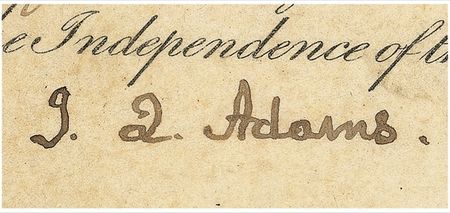 e Independence of th
J. Q. Adams.